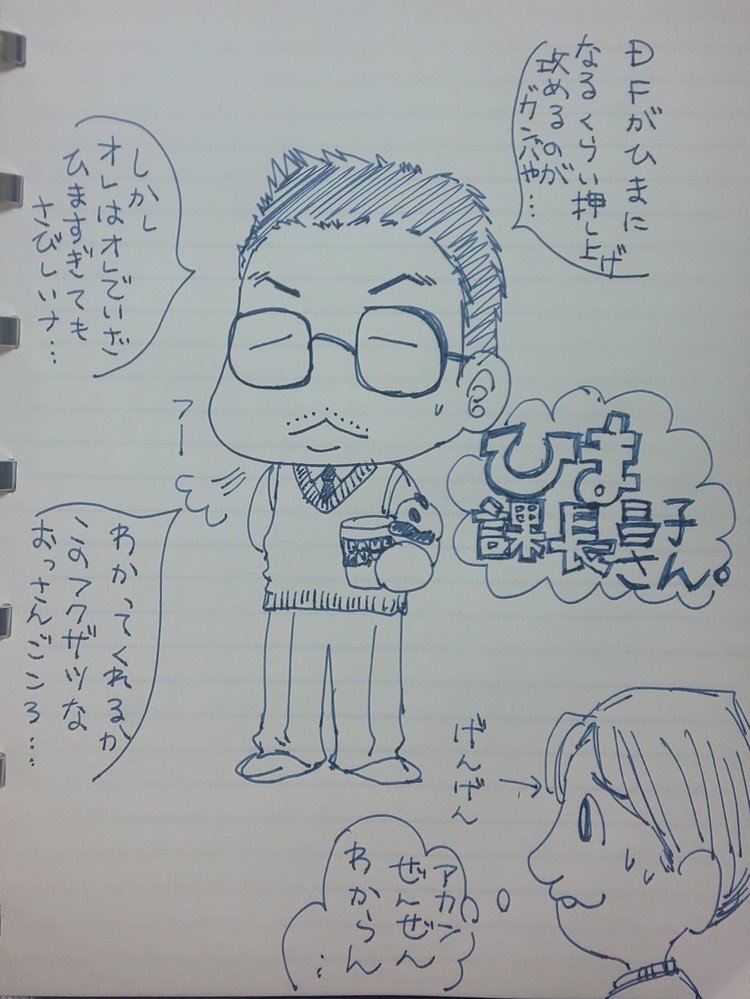 DFがひまに
なるくらい押し上げ
攻めるのが
ガンバや…
しかし
オレはオレでいざ
ひますぎても
さびしいナ…
フー
ひま
課長昌子
さん。
わかってくれるか
このフクザツな
おっさんごころ…
げんげん
アカン
ぜんぜん
わからん…